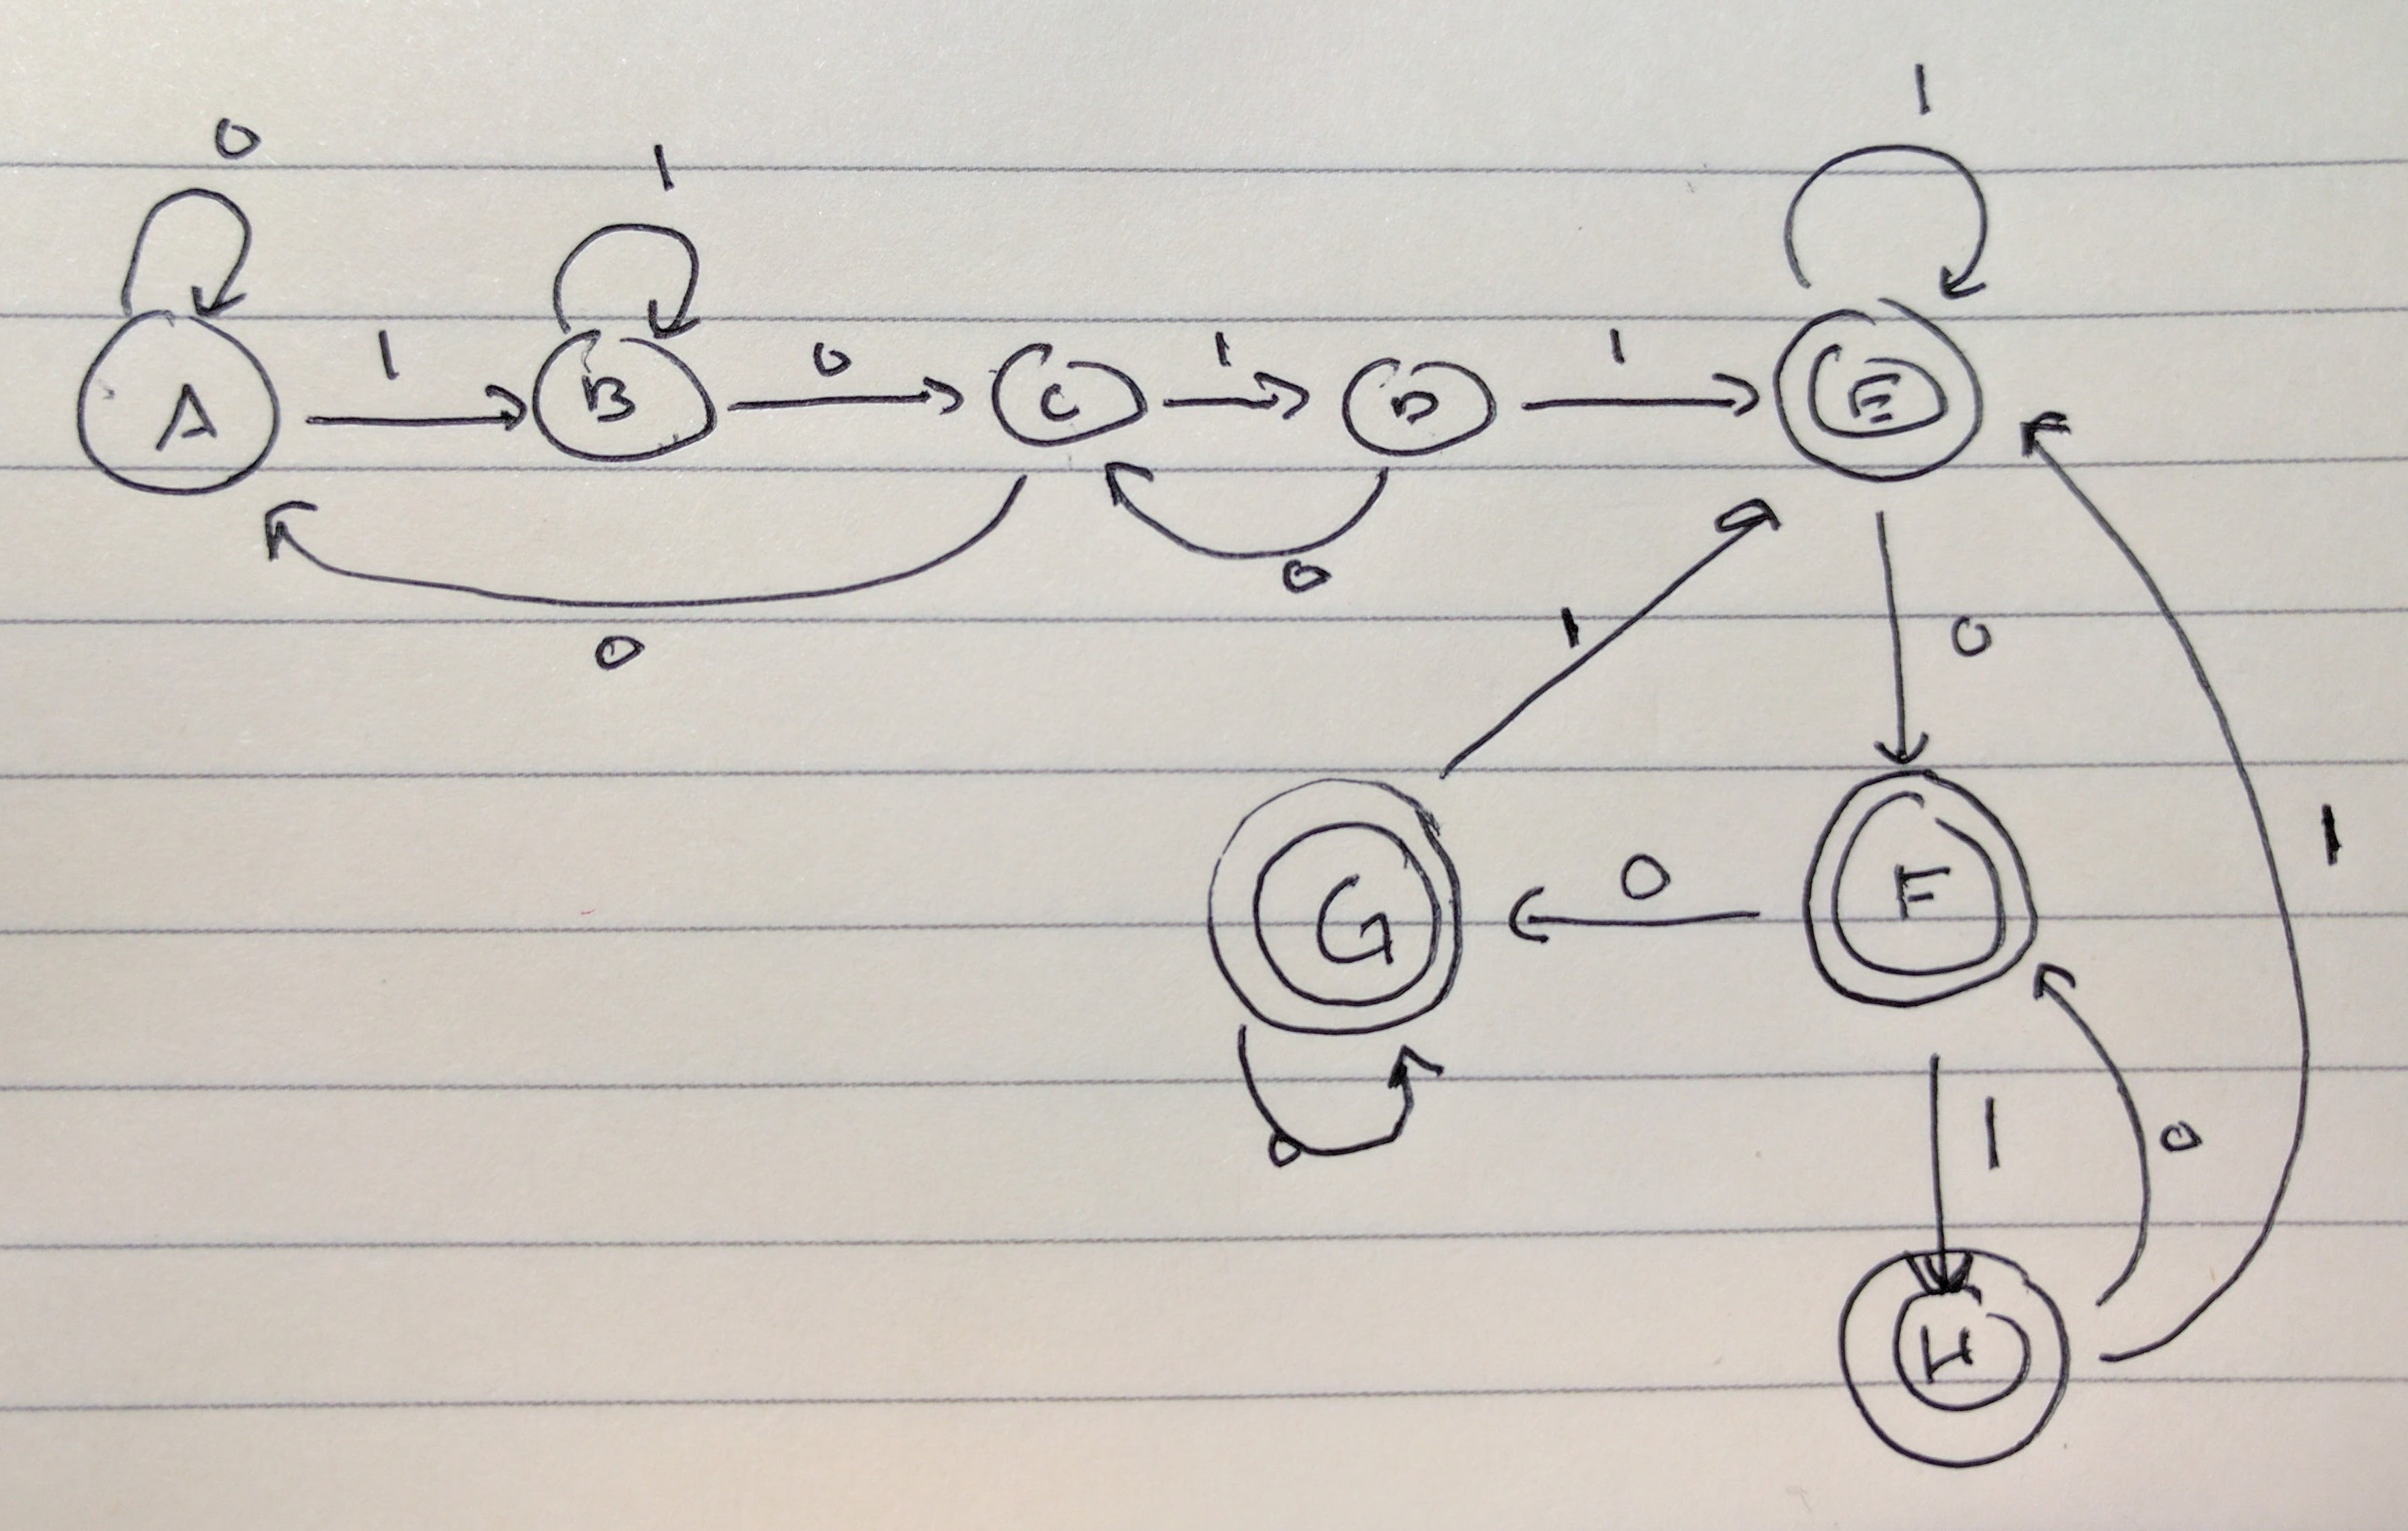 1
0
1
A
1
B
0
C
1
D
1
E
0
0
1
0
G
0
F
1
0
1
0
H